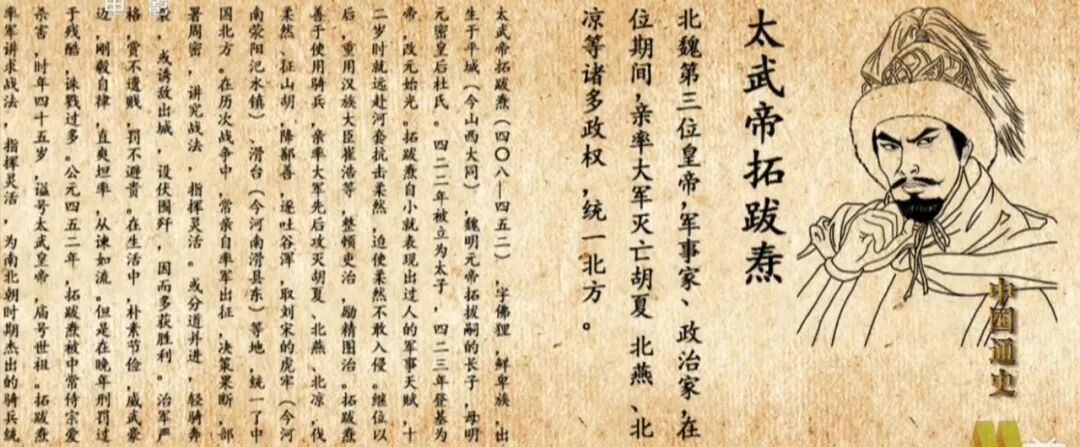 太武帝拓跋焘
北魏第三位皇帝,军事家、政治家,在
位期间,亲率大军灭亡胡夏、北燕、北
凉等诸多政权,统一北方。
太武帝拓跋焘(四〇八—四五二),字佛狸,鲜卑族,出
生于平城(今山西大同),魏明元帝拓拔嗣的长子,母明
元密皇后杜氏。四二二年被立为太子,四二三年登基为
帝,改元始光。拓跋焘自小就表现出过人的军事天赋,十
二岁时就远赴河套抗击柔然,迫使柔然不敢入侵。继位以
后,重用汉族大臣崔浩等,整顿吏治,励精图治。拓跋焘
善于使用骑兵,亲率大军先后攻灭胡夏、北燕、北凉,伐
柔然、征山胡,降鄯善,逐吐谷浑,取刘宋的虎牢(今河
南荥阳汜水镇)、滑台(今河南滑县东)等地,统一了中
国北方。在历次战争中,常亲自率军出征,决策果断,部
署周密,讲究战法,指挥灵活。或分道并进,轻骑奔
袭,或诱敌出城,设伏围歼,因而多获胜利。治军严
格,赏不遗贱,罚不避贵。在生活中,朴素节俭,威武豪
迈,刚毅自律,直爽坦率,从谏如流。但是在晚年刑罚过
于残酷,诛戮过多。公元四五二年,拓跋焘被中常侍宗爱
杀害,时年四十五岁,谥号太武皇帝,庙号世祖。拓跋焘
率军讲求战法,指挥灵活,为南北朝时期杰出的骑兵统
中国通史